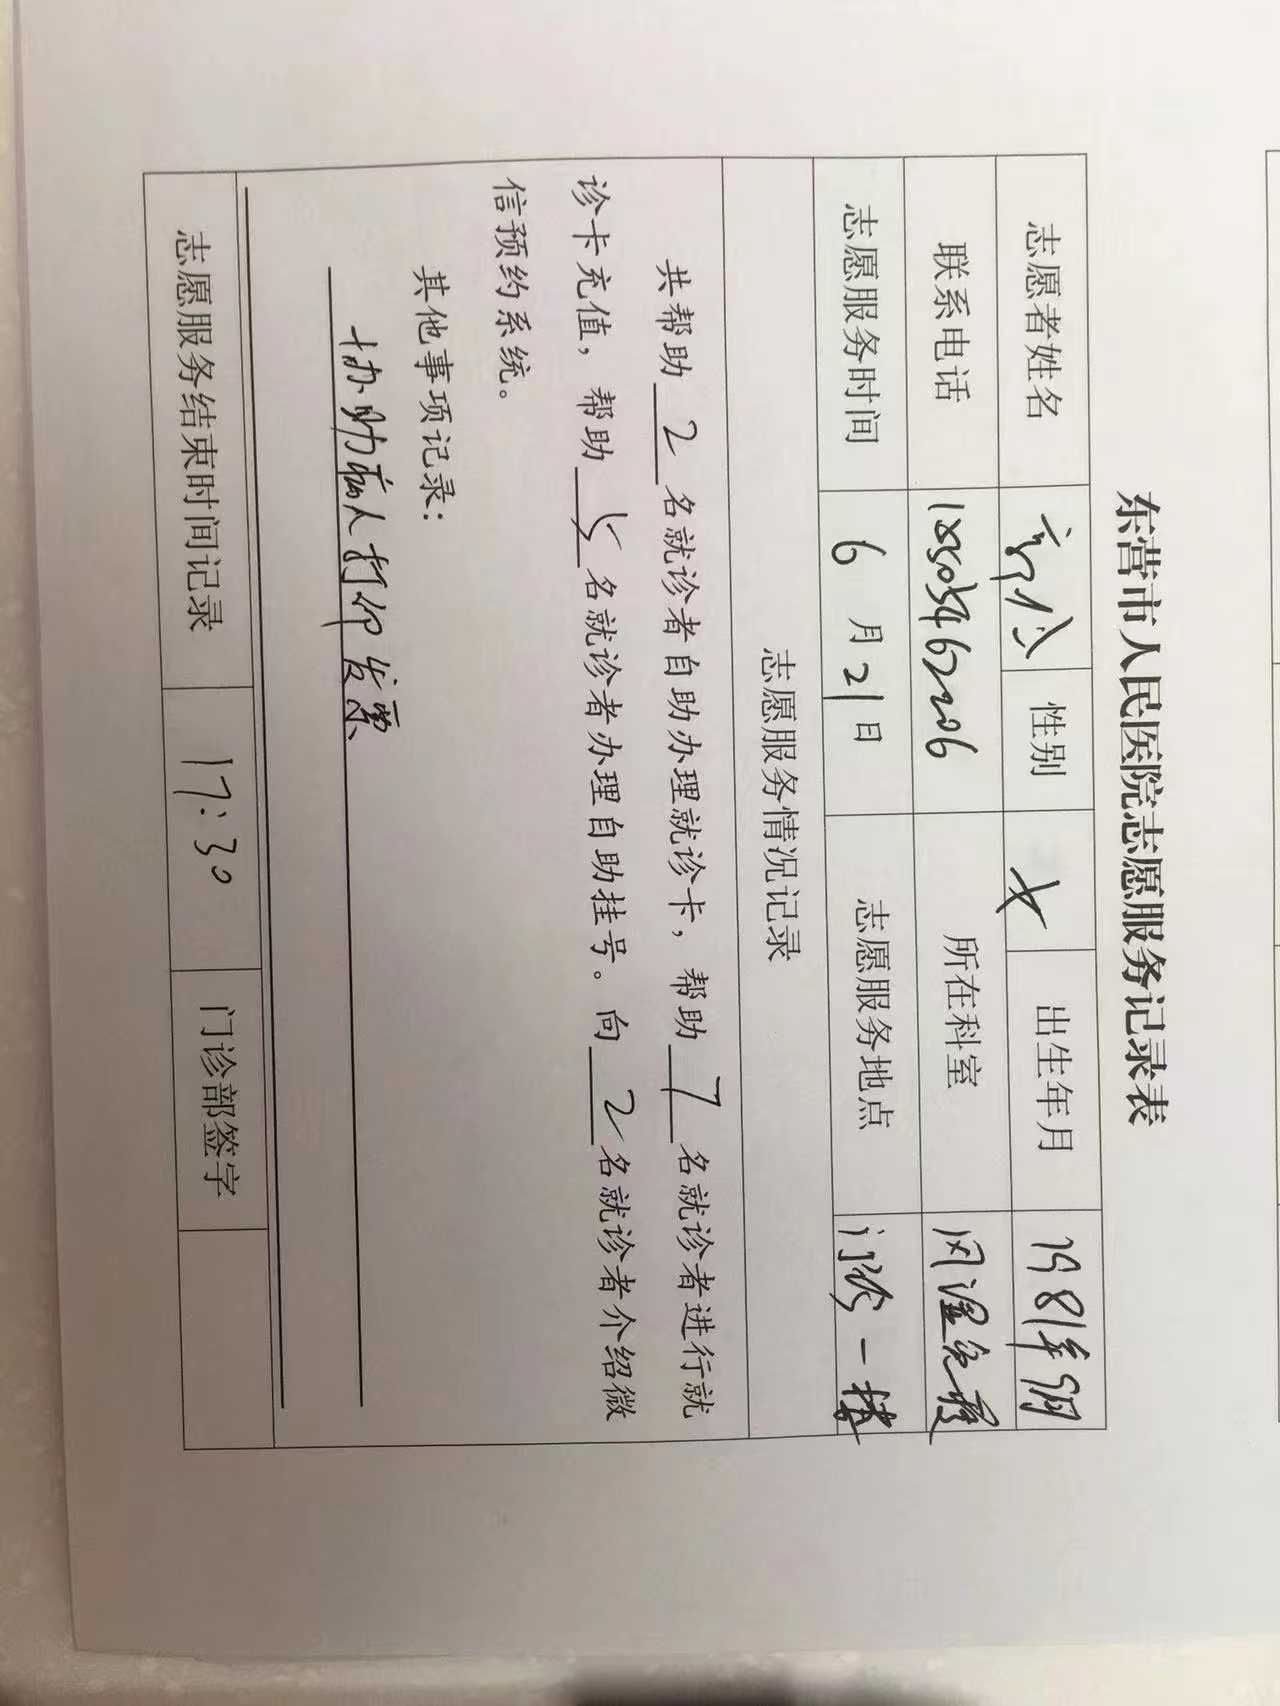 东营市人民医院志愿服务记录表
志愿者姓名 性别 女 出生年月 1981年9月
联系电话 18505462206 所在科室 风湿免疫
志愿服务时间 6月21日 志愿服务地点 门诊一楼
志愿服务情况记录
共帮助2名就诊者自助办理就诊卡，帮助7名就诊者进行就
诊卡充值，帮助5名就诊者办理自助挂号。向2名就诊者介绍微
信预约系统。
其他事项记录：
协助病人打印发票
志愿服务结束时间记录 17:30 门诊部签字